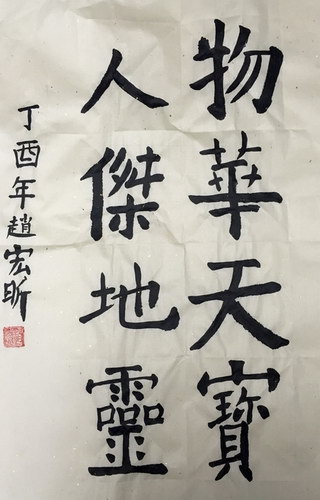 物華天寶
人傑地靈
丁酉年趙宏昕